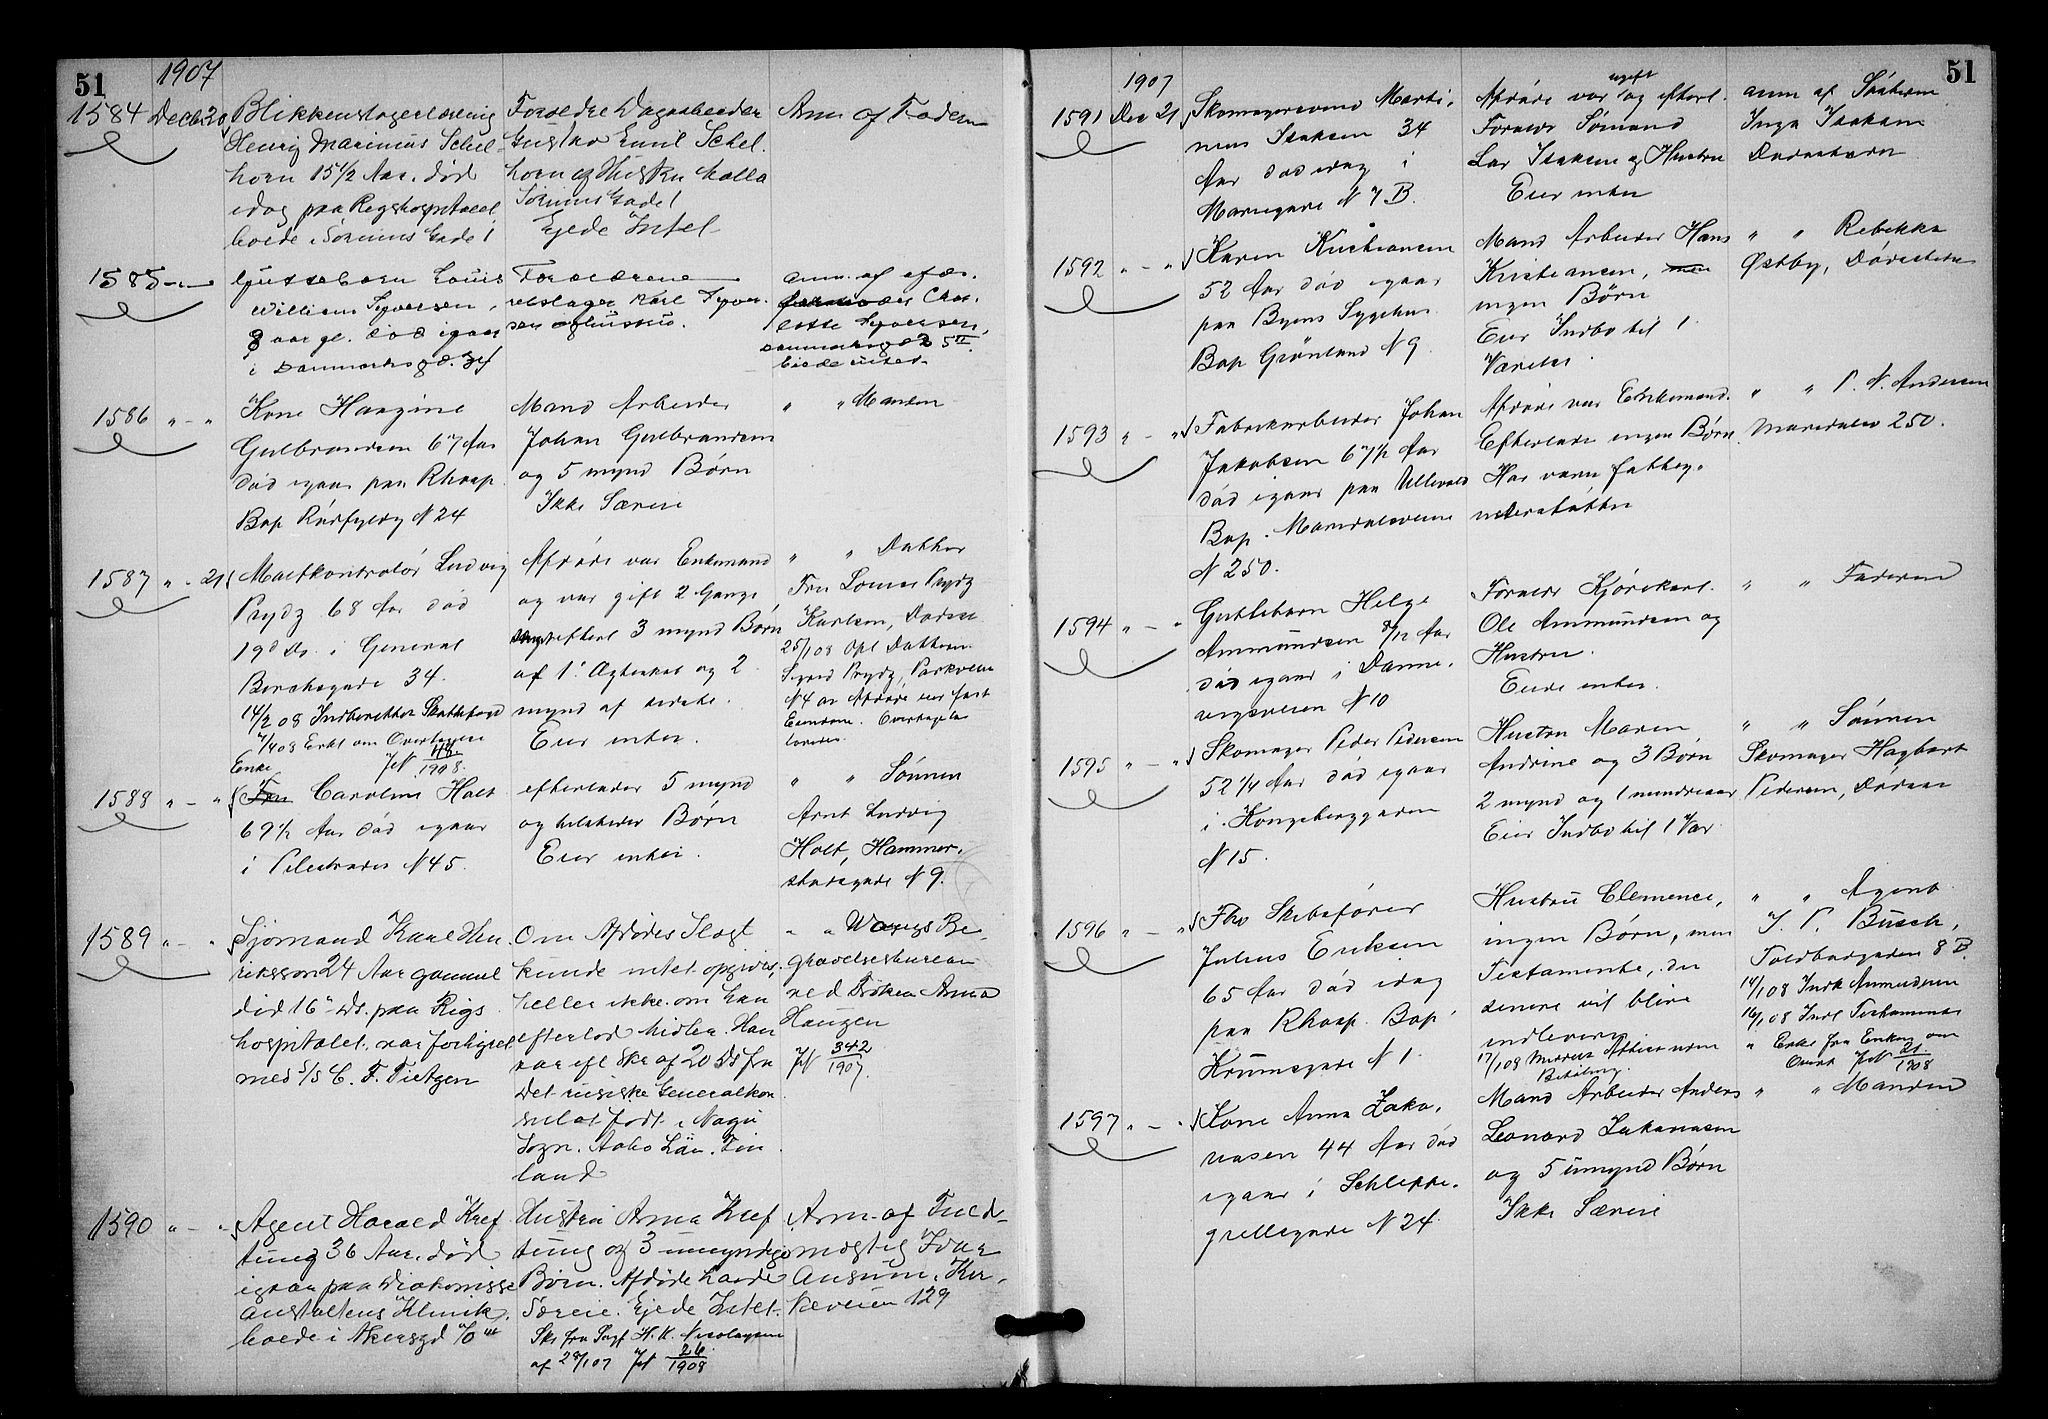 51
1907
1584 Decb. 20
Blikkenslagerlærling
Henrig Marinius Schel-
horn 15 1/2 Aar. død
idag paa Rigshospitalet
boede i Sørums Gade 1
Forældre Dagarbeider
Gustav Emil Schel.
horn og Hustru Malla
Sørums Gade 1
Ejede Intet
Anm. af Faderen
1585 - " -
Guttebarn Louis
William Syversen,
8 aar gl. død igaar
i Danmarksgd. 2
Forældrene
Karl Syver-
sen og hustru.
anm. af afdø.
lotte Syversen,
Danmarksgd 2 5 II.
Eiede intet.
1586 " - "
Kone Hangine
Gulbrandsen 67 Aar
død igaar paa Rhosp.
Bop Rørfyldg N 24
Mand Arbeider
Johan Gulbrandsen
og 5 mynd Børn
Ikke Særeie
" " Manden
1587 " - 21
Maltkontrolør Ludvig
Prydz 68 Aar død
19d Ds. i General
Birchsgade 34.
14/2 08 Indberetter Skattefogd
4/4 08 Erkl om Overtagelse
JN 48/1908.
Afdøde var Enkemand
og var gift 2 Gange
efterl 3 mynd Børn
af 1' Ægteskab og 2
mynd af sidste.
Eier intet.
" " Datter
Fru Louise Prydz
Karlsen, Dødsa
25/1 08 Opl Datteren
Sigrid Prydz, Parkveien
N 4 at Afdøde eier fast
Eiendom. Overtagelse
loves.
1588 " - "
Enke
Fru Caroline Holt
69 1/2 Aar død igaar
i Pilestrædet N 45.
efterlader 5 mynd
og tilstede Børn
Eier intet.
" " Sønnen
Arnt Ludvig
Holt, Hammer.
stadsgade N 9.
1589 " - "
Sjømand Karl Hen
riksson 24 Aar gammel
død 16 de Ds. paa Rigs
hospitalet, var forhyret
med S/S C. F. Tietgen
Om Afdødes Slægt
kunde intet opgives,
heller ikke om han
efterlod Midler. Han
var efl Skr af 20 Ds fra
Det russiske Generalkon
sulat født i Nagu
Sogn. Aabo Län. Fin
land
" " Wangs Be-
gravelsesbureau
ved Frøken Anna
Hauzen
JN 342/1907.
1590 " - "
Agent Harald Kref
ting 36 Aar. død
igaar paa Diakonisse
anstaltens Klinik,
boede i Akersgd 70 III
Hustru Anna Kref
ting og 3 umyndige
Børn. Afdøde havde
Særeie. Ejede Intet.
Skr fra Sagf H. K. Nicolaysen
af 28/1 07 JN 26/1908
Anm. af Fuld-
mægtig Ivar
Ansum. Kir.
keveien 129
51
1907
1591 Dec 21
Skomagersvend Marti-
nius Isaksen 34
Aar død idag i
Mariegade N 7 B.
Afdøde var ugift og efterl.
Forældr Sømand
Lars Isaksen og Hustru
Eier intet
anm af Søsteren
Inga Isaksen
Dødsstedet
1592 " - "
Karen Kristiansen
52 Aar død igaar
paa Byens Sygehus
Bop Grønland N 9.
Mand Arbeider Hans
Kristiansen, men
ingen Børn
Eier Indbo til 1
Værelse.
" " Rebekka
Østby, Dødsstedet
1593 " - "
Fabrikarbeider Johan
Jakobsen 67 1/2 Aar
død igaar paa Ullevold
Bop. Maridalsveien
N 250.
Afdøde var Enkemand.
Efterlade ingen Børn.
Har været fattig-
understøttet
" " P. N. Andersen
Maridalsv 250.
1594 " - "
Guttebarn Helge
Ammundsen 8/12 Aar
død igaar i Danne-
vigsveien N 10
Forældr Kjørekarl.
Ole Ammundsen og
Hustru.
Eiede intet.
" " Faderen
1595 " - "
Skomager Peder Pedersen
52 1/4 Aar død igaar
i Kongsberggaden
N 15.
Hustru Maren
Andrine og 3 Børn
2 mynd og 1 mindreaar
Eier Indbo til 1 Vær.
" " Sønnen
Skomager Hagbart
Pedersen, Dødssa
1596 " - "
Fhv Skibsfører
Julius Eriksen
65 Aar død idag
paa Rhosp. Bop.
Krumsgade N 1.
Hustru Clemence,
ingen Børn, men
Testamente, der
senere vil blive
indleveret
17/1 08 Attest uden
Betaling.
" " Agent
J. P. Busch,
Toldbodgaden 8 B.
14/1 08 Indk Anmelderen
16/1 08 Indl Testamentet
" Erkl fra Enken om
Overt JN 21/1908
1597 " - "
Kone Anna Zaka.
riasen 44 Aar død
igaar i Schleppe.
grellsgade N 24.
Mand Arbeider Anders
Leonard Zakariasen
og 5 umynd Børn
Ikke Særeie
" " Manden